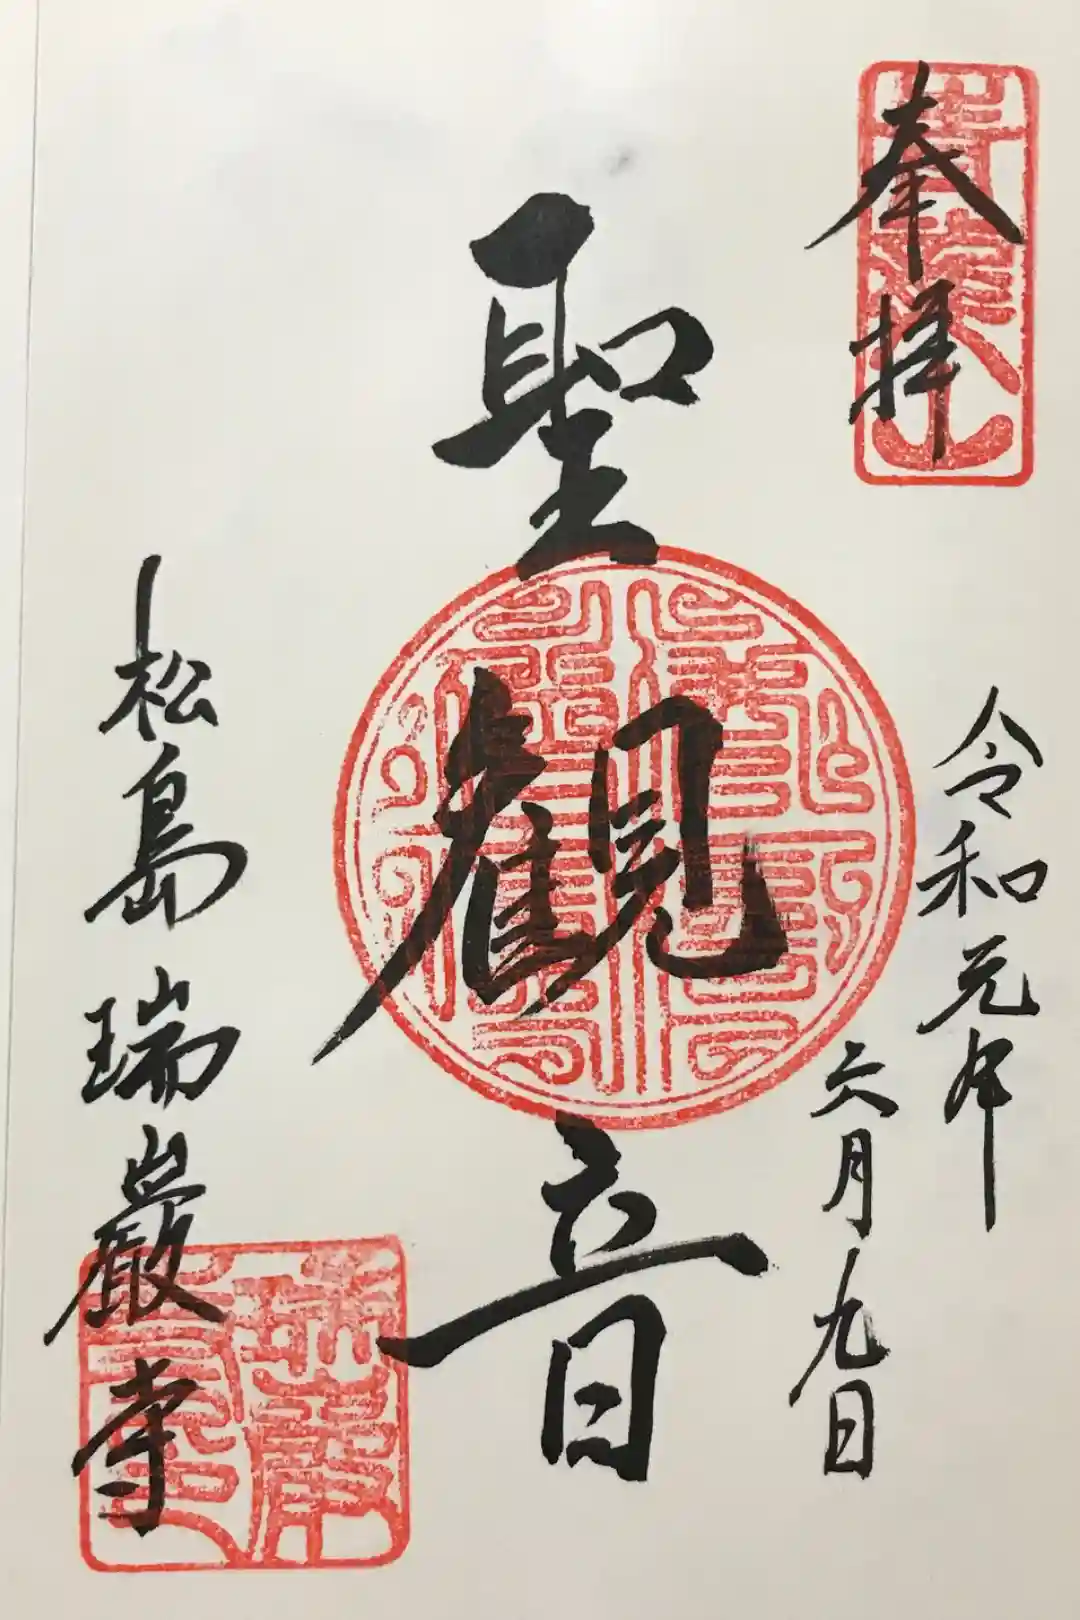 奉拝
令和元年
六月九日
聖觀音
松島瑞巌寺